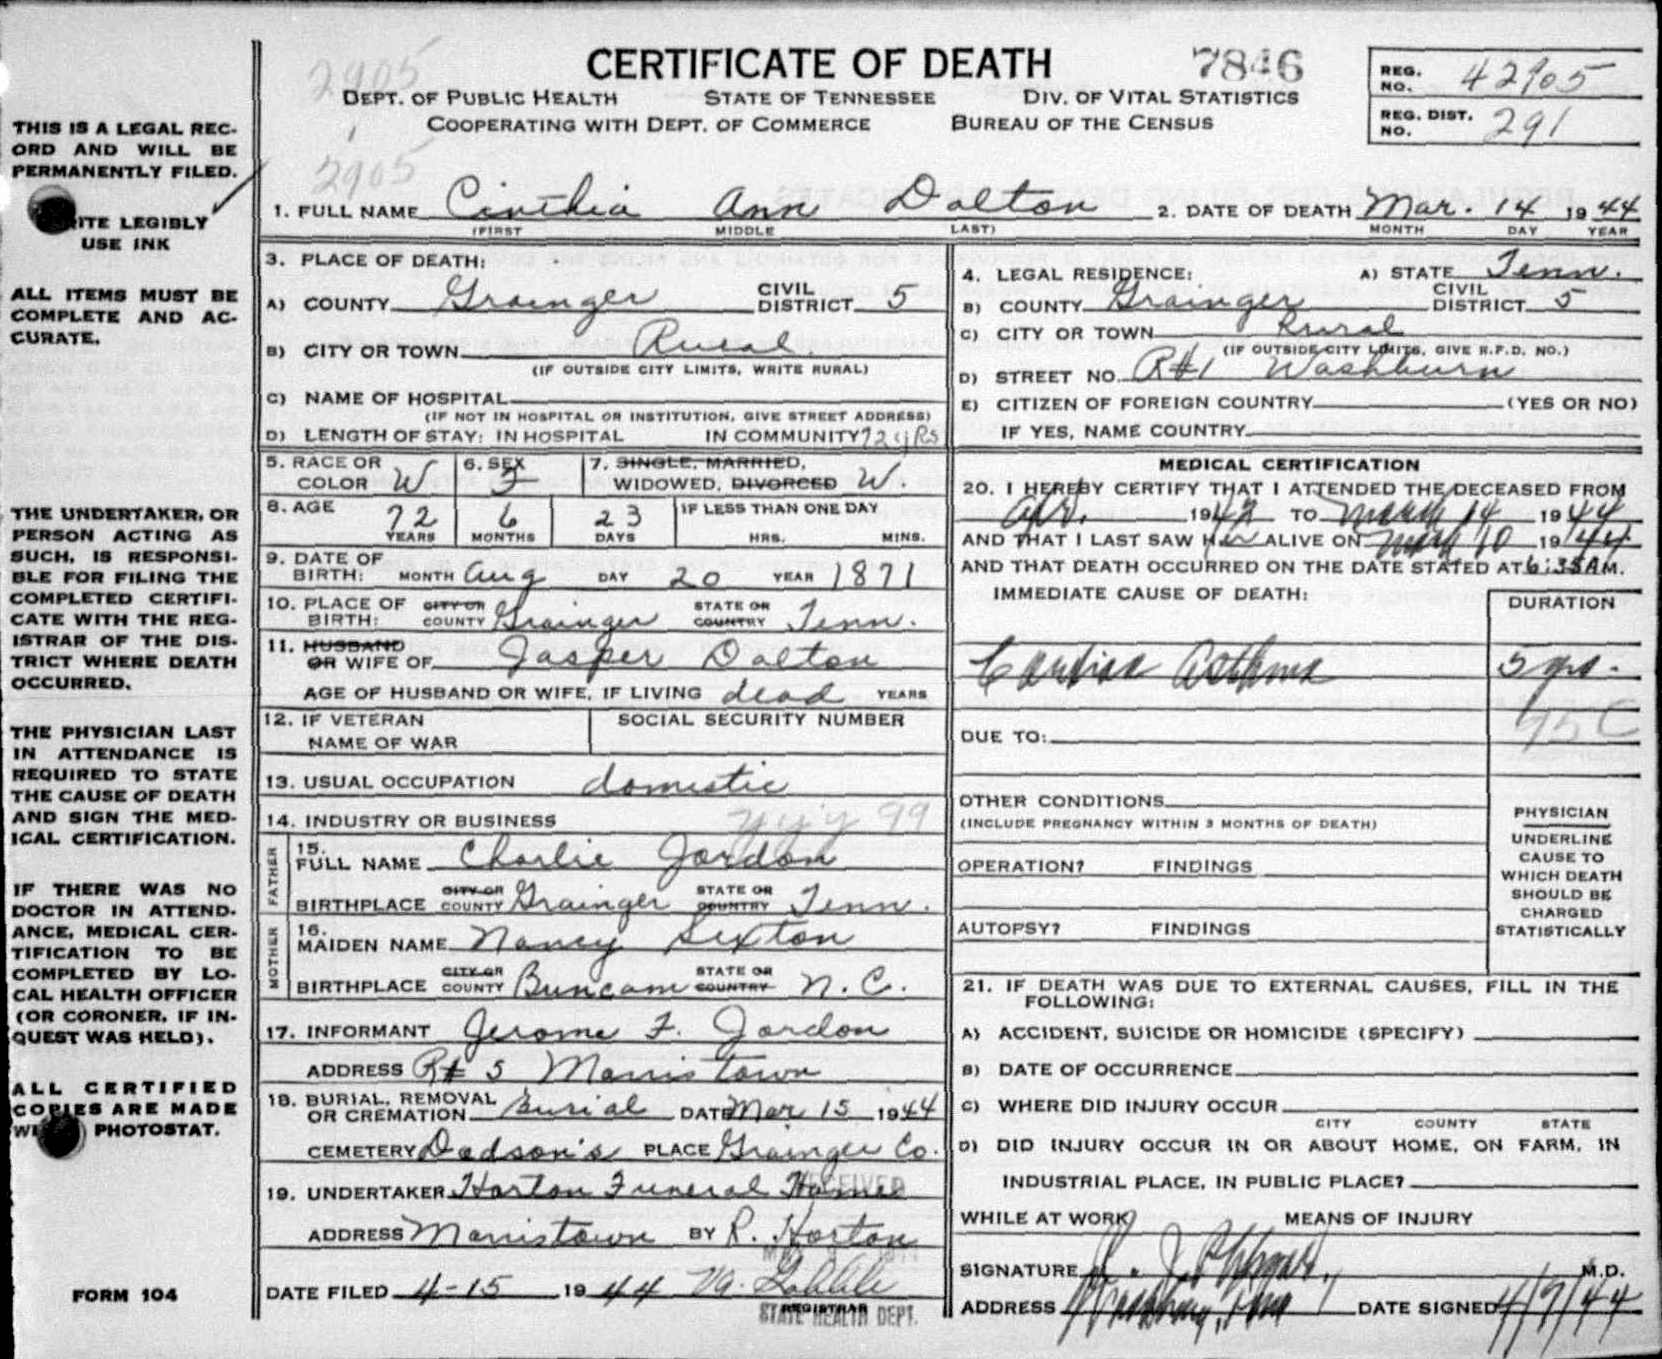 CERTIFICATE OF DEATH 7846
REG. NO. 42905
2905
DEPT. OF PUBLIC HEALTH STATE OF TENNESSEE DIV. OF VITAL STATISTICS
COOPERATING WITH DEPT. OF COMMERCE BUREAU OF THE CENSUS
REG. DIST. NO. 291
2905
THIS IS A LEGAL REC-
ORD AND WILL BE
PERMANENTLY FILED.
ITE LEGIBLY
USE INK
ALL ITEMS MUST BE
COMPLETE AND AC-
CURATE.
THE UNDERTAKER, OR
PERSON ACTING AS
SUCH, IS RESPONSI-
BLE FOR FILING THE
COMPLETED CERTIFI-
CATE WITH THE REG-
ISTRAR OF THE DIS-
TRICT WHERE DEATH
OCCURRED.
THE PHYSICIAN LAST
IN ATTENDANCE IS
REQUIRED TO STATE
THE CAUSE OF DEATH
AND SIGN THE MED-
ICAL CERTIFICATION.
IF THERE WAS NO
DOCTOR IN ATTEND-
ANCE, MEDICAL CER-
TIFICATION TO BE
COMPLETED BY LO-
CAL HEALTH OFFICER
(OR CORONER, IF IN-
QUEST WAS HELD).
ALL CERTIFIED
COPIES ARE MADE
PHOTOSTAT.
FORM 104
1. FULL NAME Cinthia Ann Dalton 2. DATE OF DEATH Mar. 14 1944
(FIRST MIDDLE LAST) MONTH DAY YEAR
3. PLACE OF DEATH:
A) COUNTY Grainger CIVIL DISTRICT 5
B) CITY OR TOWN Rural
(IF OUTSIDE CITY LIMITS, WRITE RURAL)
C) NAME OF HOSPITAL
(IF NOT IN HOSPITAL OR INSTITUTION, GIVE STREET ADDRESS)
D) LENGTH OF STAY: IN HOSPITAL IN COMMUNITY 72 yRs
4. LEGAL RESIDENCE: A) STATE Tenn.
B) COUNTY Grainger CIVIL DISTRICT 5
C) CITY OR TOWN Rural
(IF OUTSIDE CITY LIMITS, GIVE R.F.D. NO.)
D) STREET NO. R#1 Washburn
E) CITIZEN OF FOREIGN COUNTRY (YES OR NO)
IF YES, NAME COUNTRY
5. RACE OR COLOR W 6. SEX F 7. SINGLE, MARRIED,
WIDOWED, DIVORCED W.
8. AGE 72 6 23 IF LESS THAN ONE DAY
YEARS MONTHS DAYS HRS. MINS.
9. DATE OF
BIRTH: MONTH Aug DAY 20 YEAR 1871
10. PLACE OF BIRTH: CITY OR COUNTY Grainger STATE OR COUNTRY Tenn.
11. HUSBAND
OR WIFE OF Jasper Dalton
AGE OF HUSBAND OR WIFE, IF LIVING dead YEARS
12. IF VETERAN SOCIAL SECURITY NUMBER
NAME OF WAR
13. USUAL OCCUPATION domestic
14. INDUSTRY OR BUSINESS yyy 99
FATHER
15.
FULL NAME Charlie Jordon
BIRTHPLACE CITY OR COUNTY Grainger STATE OR COUNTRY Tenn.
MOTHER
16.
MAIDEN NAME Nancy Sexton
BIRTHPLACE CITY OR COUNTY Buncam STATE OR COUNTRY N. C.
17. INFORMANT Jerome F. Jordon
ADDRESS R# 5 Morristown
18. BURIAL, REMOVAL
OR CREMATION Burial DATE Mar 15 1944
CEMETERY Dodson's PLACE Grainger Co.
19. UNDERTAKER Horton Funeral Home
RECEIVED
ADDRESS Morristown BY R. Horton
DATE FILED 4-15 1944
REGISTRAR
STATE HEALTH DEPT.
MEDICAL CERTIFICATION
20. I HEREBY CERTIFY THAT I ATTENDED THE DECEASED FROM
Apr. 1942 TO March 14 1944
AND THAT I LAST SAW Her ALIVE ON March 10 1944
AND THAT DEATH OCCURRED ON THE DATE STATED AT 6:35 AM.
IMMEDIATE CAUSE OF DEATH: DURATION
Cardiac Asthma 5 yrs.
95C
DUE TO:
OTHER CONDITIONS
(INCLUDE PREGNANCY WITHIN 3 MONTHS OF DEATH)
OPERATION? FINDINGS
AUTOPSY? FINDINGS
PHYSICIAN
UNDERLINE
CAUSE TO
WHICH DEATH
SHOULD BE
CHARGED
STATISTICALLY
21. IF DEATH WAS DUE TO EXTERNAL CAUSES, FILL IN THE
FOLLOWING:
A) ACCIDENT, SUICIDE OR HOMICIDE (SPECIFY)
B) DATE OF OCCURRENCE
C) WHERE DID INJURY OCCUR
CITY COUNTY STATE
D) DID INJURY OCCUR IN OR ABOUT HOME, ON FARM, IN
INDUSTRIAL PLACE, IN PUBLIC PLACE?
WHILE AT WORK MEANS OF INJURY
SIGNATURE M.D.
ADDRESS Washburn, Tenn DATE SIGNED 4/9/44